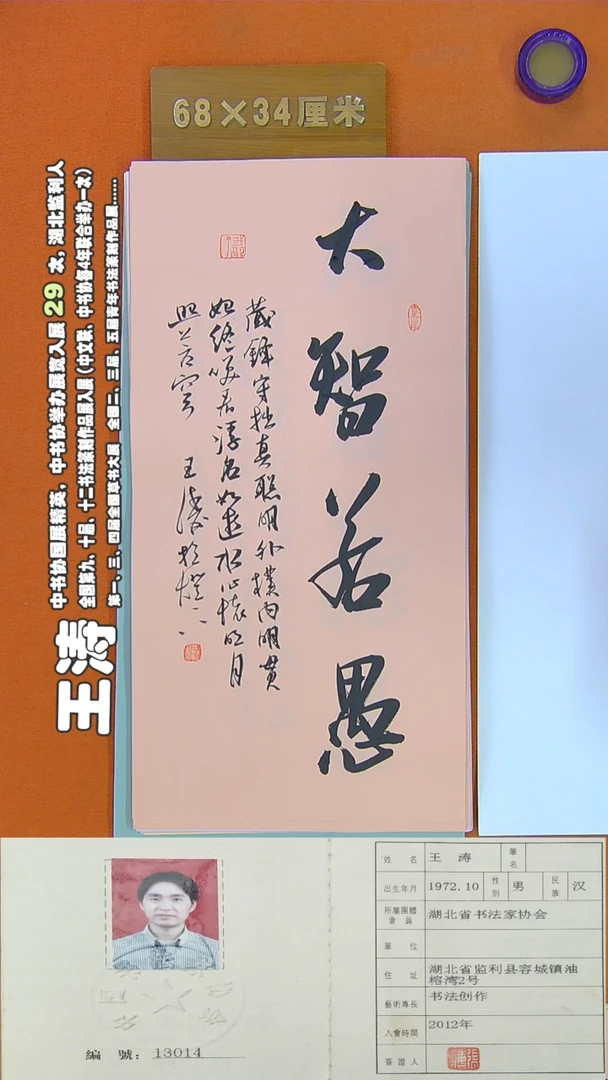 68×34厘米
大智若愚
藏锋守拙真聪明外朴内明贯
始终笑看浮名如逝水心怀明月
照苍穹 王涛
王涛
中书协国展精英，中书协举办展赛入展 29 次，湖北监利人
全国第九、十届、十二书法篆刻作品展入展（中文联、中书协每4年联合举办一次）
第一、三、四届全国草书大展 全国二、三届、五届青年书法篆刻作品展……
姓名 王 涛 筆名
出生年月 1972.10 性别 男 民族 汉
所屬團體會員 湖北省书法家协会
單位
住址 湖北省监利县容城镇油榕湾2号
藝術專長 书法创作
入會時間 2012年
簽證人
編號：13014